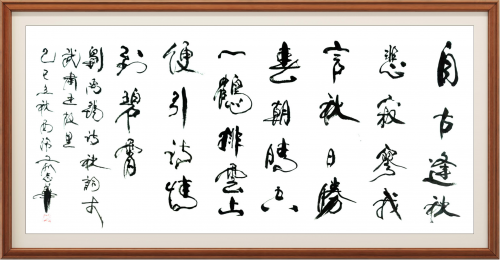 自古逢秋
悲寂寥我
言秋日勝
春朝晴空
一鶴排雲上
便引詩情
到碧霄
劉禹錫詩秋詞
故里
立秋